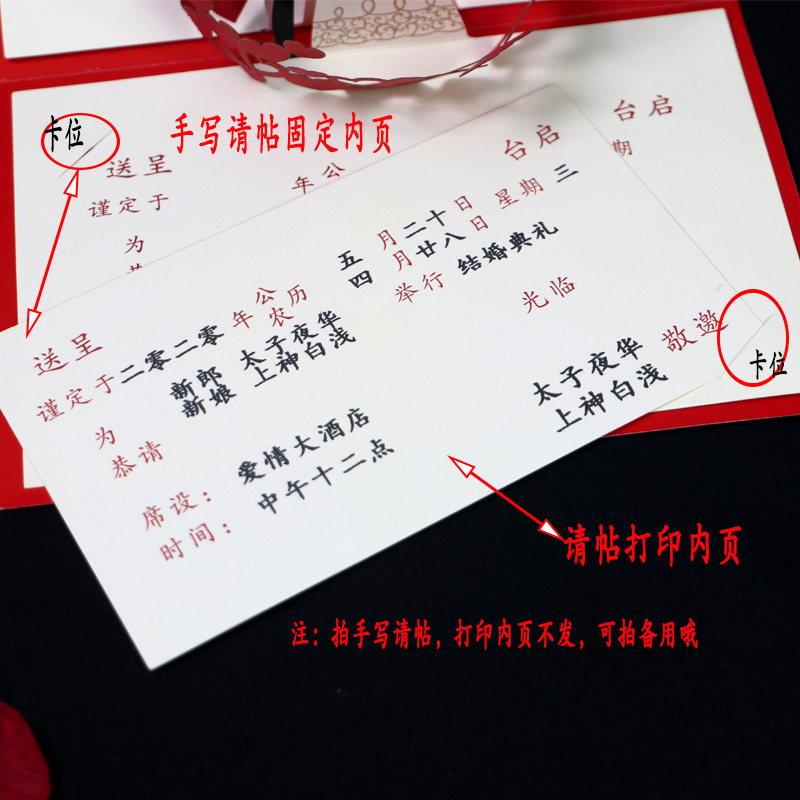 卡位
手写请帖固定内页
送呈 台启
谨定于 年 公
期
为
恭
送呈 台启
谨定于二零二零年 公历 五月二十日 星期三
农 四月廿八日
为 新郎 太子夜华 举行 结婚典礼
新娘 上神白浅
恭请 光临
席设：爱情大酒店 太子夜华 敬邀
时间：中午十二点 上神白浅
卡位
请帖打印内页
注：拍手写请帖，打印内页不发，可拍备用哦